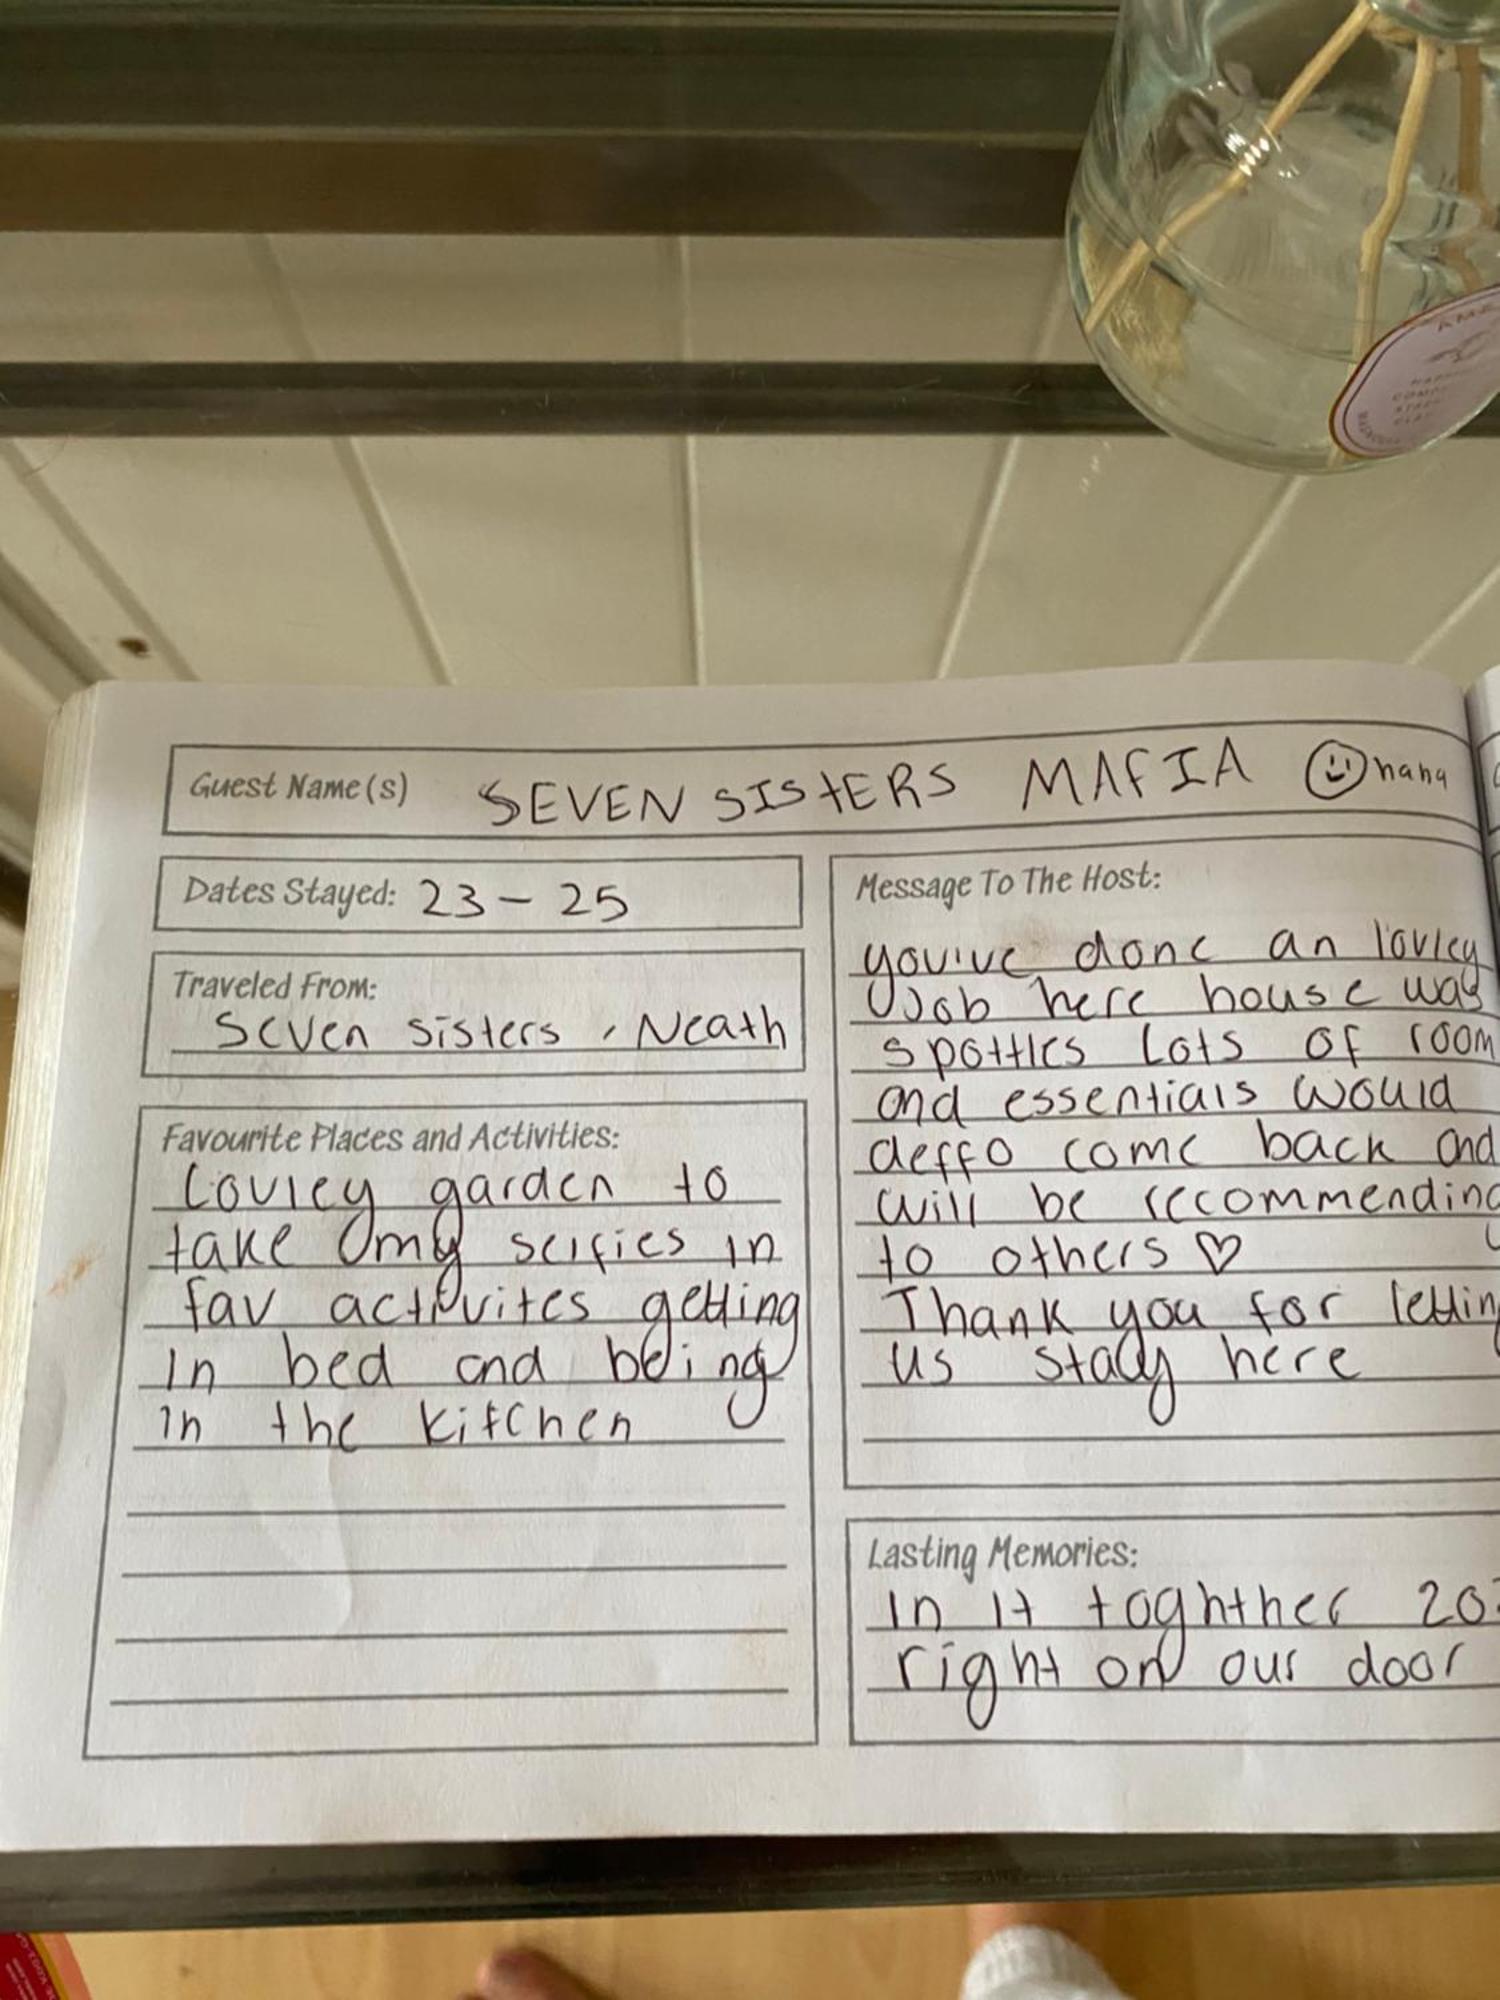 Guest Name(s) SEVEN SISTERS MAFIA hana
Dates Stayed: 23 - 25
Traveled From:
Seven sisters, Neath
Favourite Places and Activities:
Lovley garden to
take my selfies in
fav activites getting
in bed and being
in the kitchen
Message To The Host:
youive done an lovley
Job here house was
spottles Lots of room
and essentials would
deffo come back and
will be recommending
to others ♡
Thank you for letting
us stay here
Lasting Memories:
in it toghther 20
right on our door